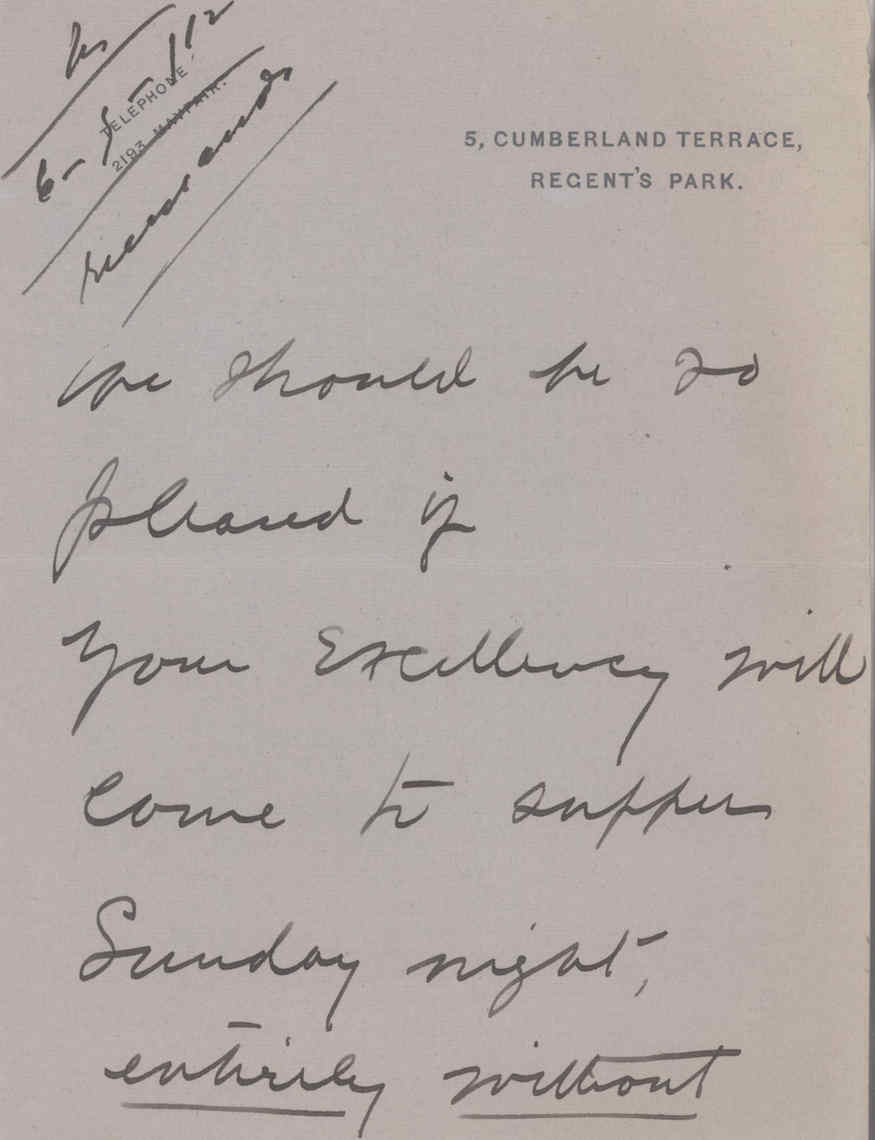 6-5-112
TELEPHONE
2193 MAYFAIR.
5, CUMBERLAND TERRACE,
REGENT'S PARK.
We should be so
pleased if
Your Excellency will
come to supper
Sunday night,
entirely without